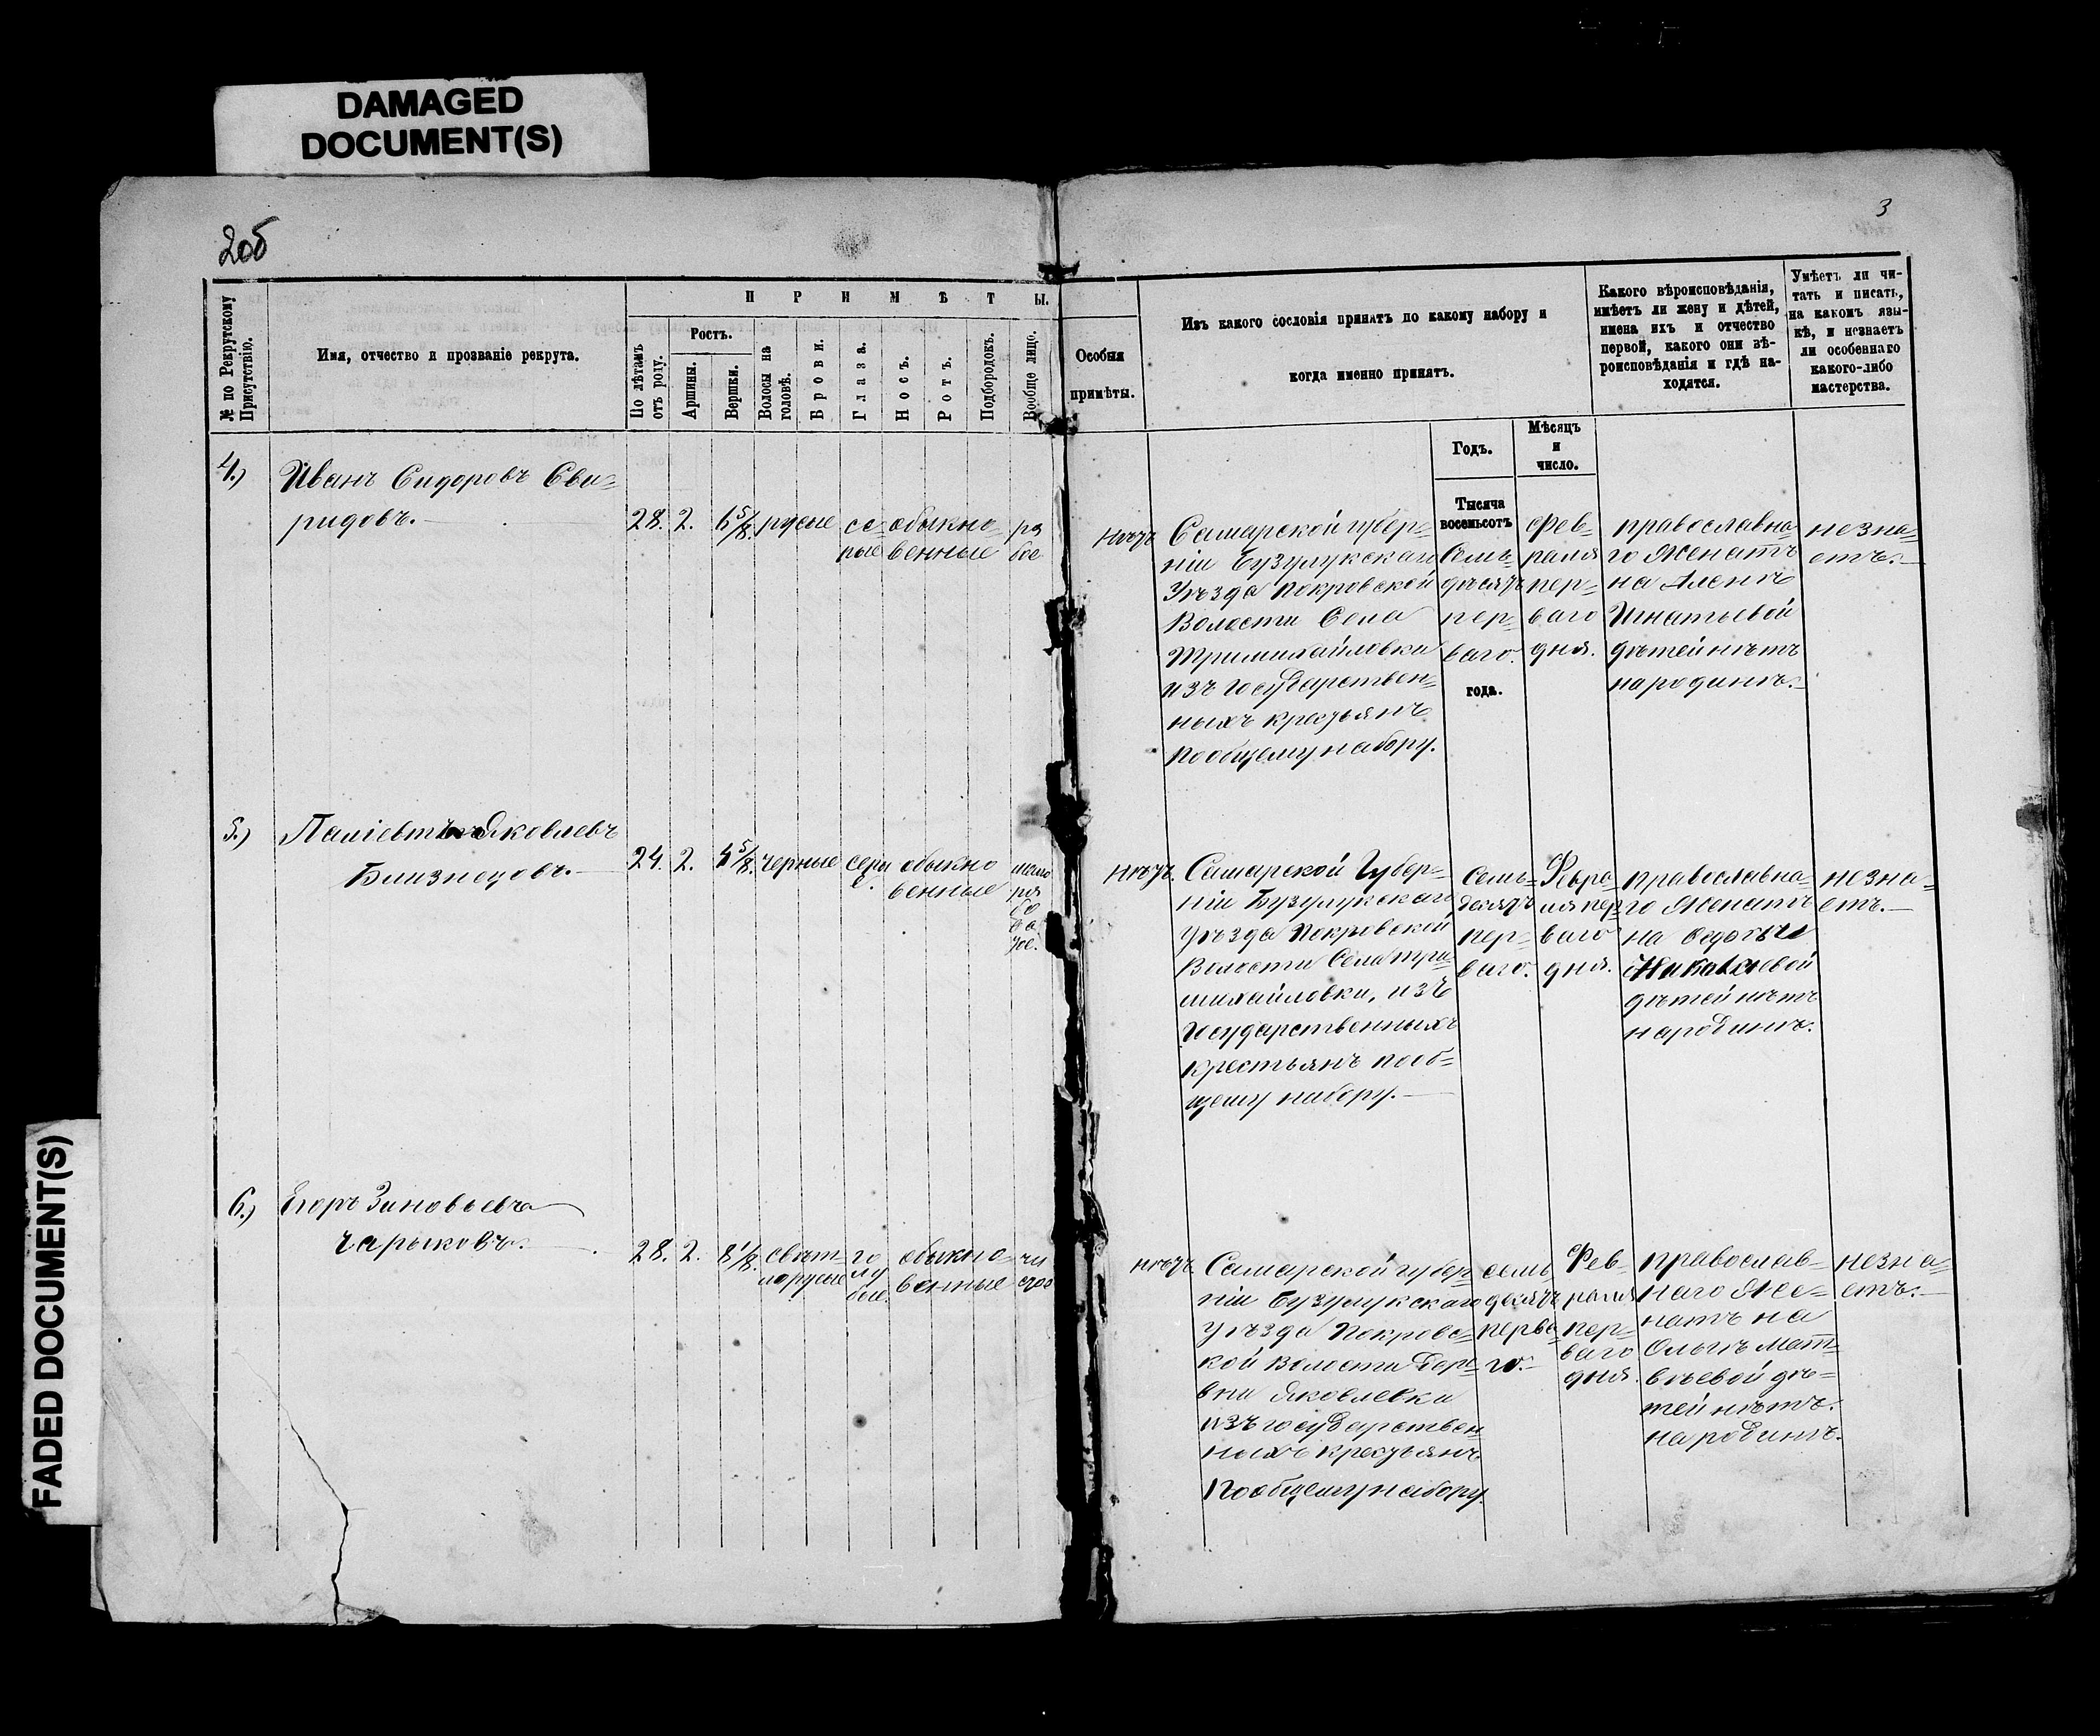 DAMAGED
DOCUMENT(S)
FADED DOCUMENT(S)
2об
3
№ по Рекрутскому
Присутствію.
Имя, отчество и прозваніе рекрута.
ПРИМѢТЫ.
По лѣтамъ
отъ роду.
Ростъ.
Аршины.
Вершки.
Волосы на
головѣ.
Брови.
Глаза.
Носъ.
Ротъ.
Подбородокъ.
Вообще лицо.
Особыя
примѣты.
Изъ какого сословія принятъ по какому набору и
когда именно принятъ.
Какого вѣроисповѣданія,
имѣетъ ли жену и дѣтей,
имена ихъ и отчество
первой, какого они вѣ-
роисповѣданія и гдѣ на-
ходятся.
Умѣетъ ли чи-
тать и писать,
на какомъ язы-
кѣ, и незнаетъ
ли особеннаго
какого-либо
мастерства.
Годъ.
Мѣсяцъ
и
число.
4.)
Иванъ Сидоровъ Сви=
ридовъ.
28.
2.
6 5/8.
русые
се-
рые
обыкно-
венные
ря
бое
нѣтъ
Самарской губер-
ніи Бузулукскаго
Уѣзда Покровской
Волости Села
Тримихайловки
изъ государствен=
ныхъ крестьянъ
пообщему набору.
Тысяча
восемьсотъ
семь-
десятъ
пер=
ваго.
года.
Фев=
раля
пер=
ваго
дня.
православна=
го Женатъ
на Аленѣ
Игнатьевой
дѣтей нѣтъ
народинѣ.
незна=
етъ.
5.)
Яковлевъ
Близнецовъ.
24.
2.
4 5/8.
черные
серы
е.
обыкно
венные
нѣтъ.
Самарской Губер-
ніи Бузулукскаго
уѣзда Покровской
Волости Села три
михайловки, изъ
Государственныхъ
крестьянъ пооб=
щему набору.
Семь=
десятъ
пер=
ваго.
Февра=
ля пер-
ваго
дня.
православна=
го Женатъ
на
дѣтей нѣтъ
народинѣ.
незна=
етъ.
6.)
Егоръ Зиновьевъ
Чарыковъ.
28.
2.
8 1/8.
свѣт-
лорусые
го
лу
бые.
обыкно=
венные
чи
стое
нѣтъ.
Самарской губер
ніи Бузулукскаго
уѣзда Покровс=
кой Волости дере
вни Яковлевки
изъ государствен
ныхъ крестьянъ
пообщему набору.
семь
десятъ
перва=
го.
Фев=
раля
пер=
ваго
дня.
православ=
наго Же=
натъ на
Ольгѣ Мат=
вѣевой дѣ=
тей нѣтъ.
народинѣ.
незна=
етъ.